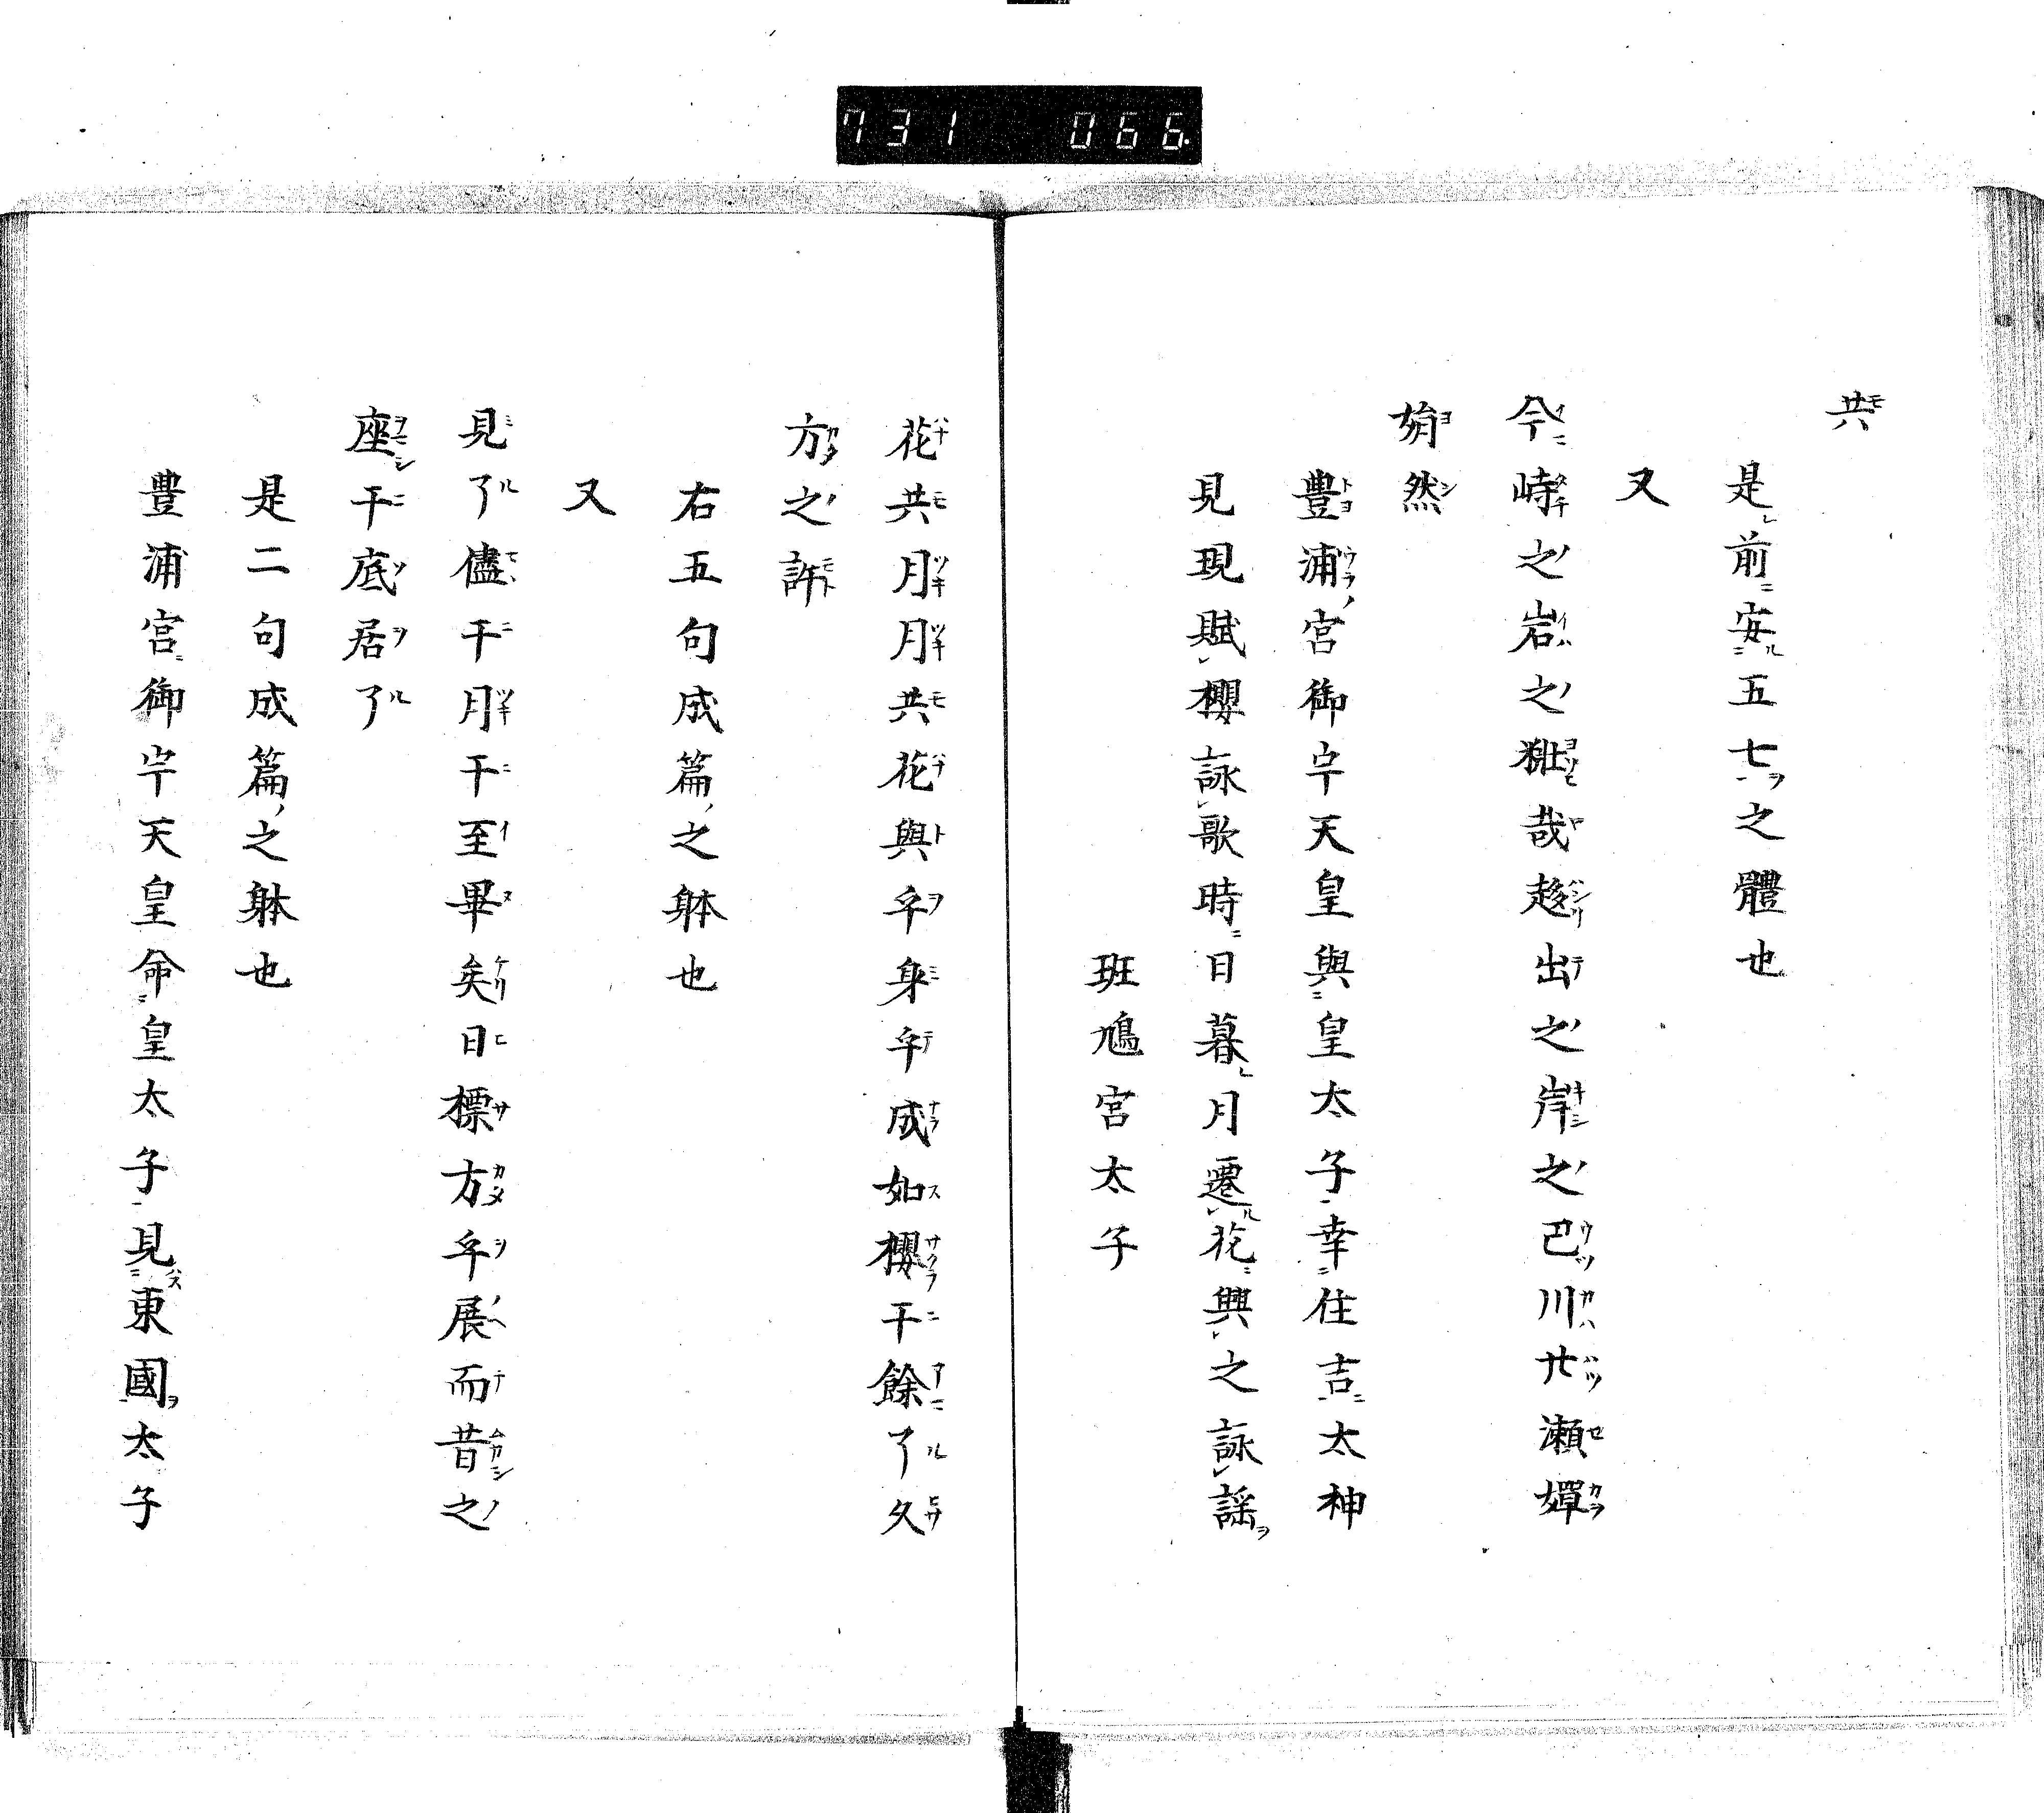 731 066
共
是前安五七之體也
又
今峙之岩之巡哉趍出之岸之巴川廿瀨嬋
姷然
豐浦宮御宇天皇與皇太子幸住吉太神
見現賦櫻詠歌時日暮月遷花興之詠謡
班鳩宮太子
花共月月共花與乎身乎成如櫻干餘了久
方之許
右五句成篇之躰也
又
見了儘干月干至畢矣日標方乎展而昔之
座干底居了
是二句成篇之躰也
豊浦宮御宇天皇命皇太子見東國太子